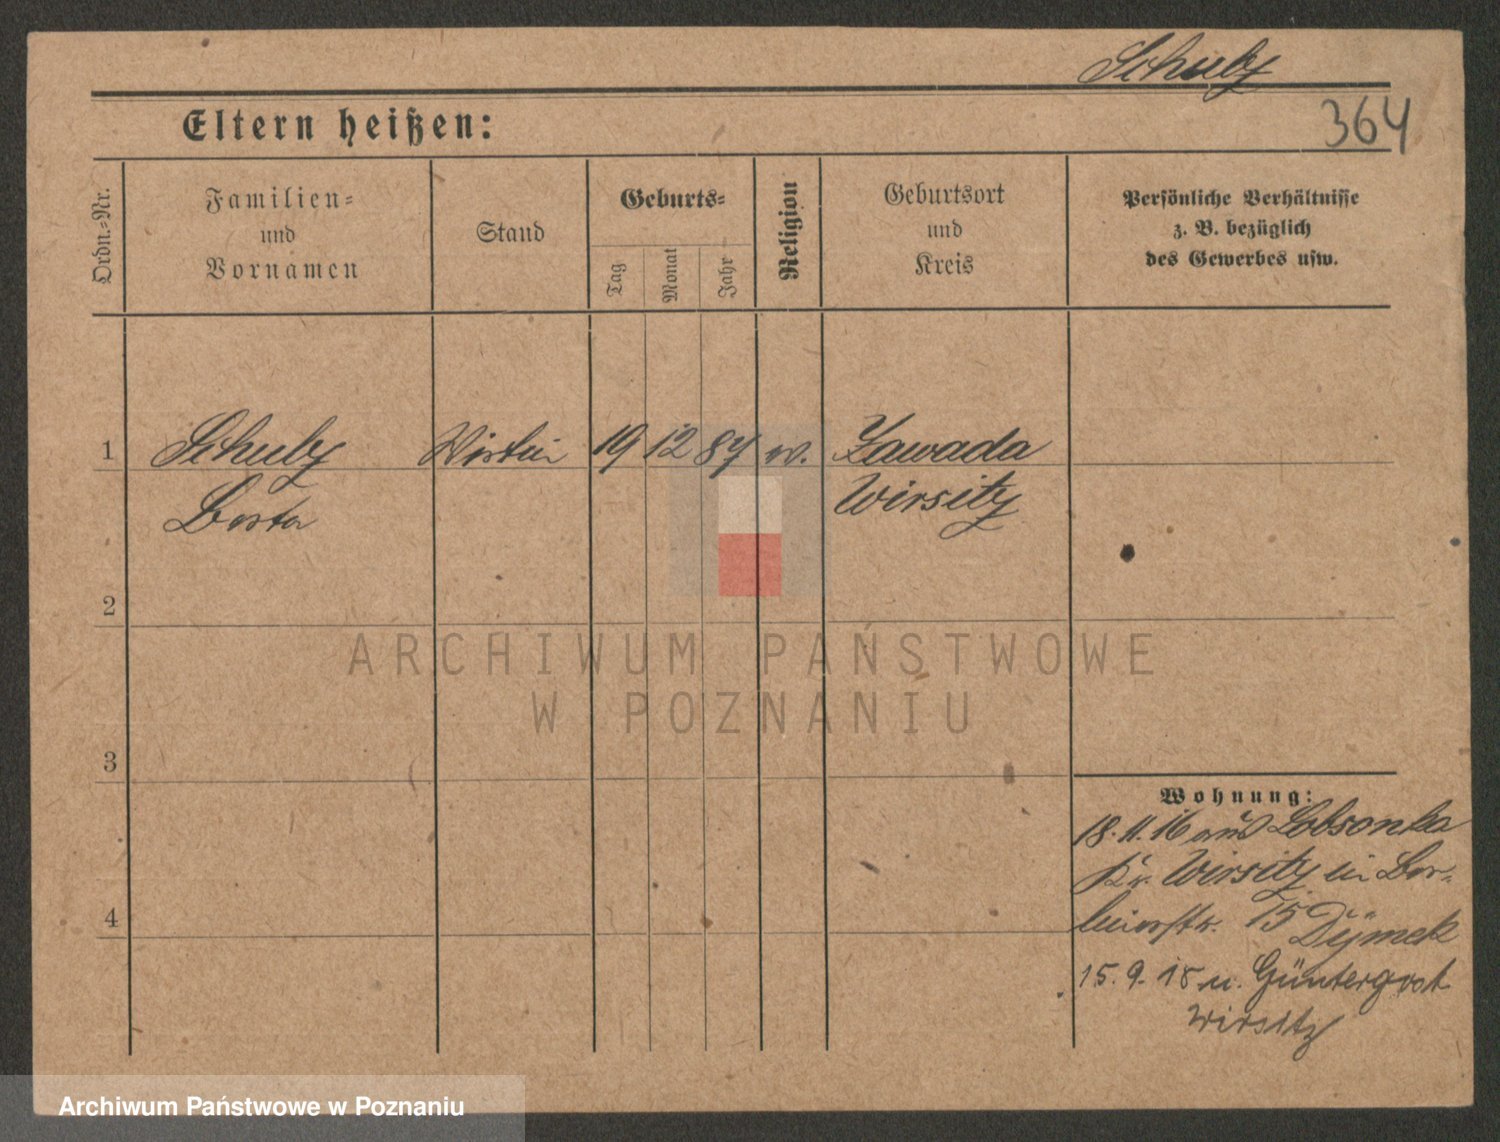 Schulz
Eltern heißen:
364
Ordn.-Nr.
Familien-
und
Vornamen
Stand
Geburts-
Tag
Monat
Jahr
Religion
Geburtsort
und
Kreis
Persönliche Verhältnisse
z. B. bezüglich
des Gewerbes usw.
1 Schulz Wirtin 19 12 87 Zawada
Wirsitz
2
3
4
Wohnung:
18.11.16 aus Lobsonka
Kr. Wirsitz in Ber-
linerstr. 15 Dymek
15.9.18 n. Güntergost
Wirsitz
ARCHIWUM PAŃSTWOWE
W POZNANIU
Archiwum Państwowe w Poznaniu